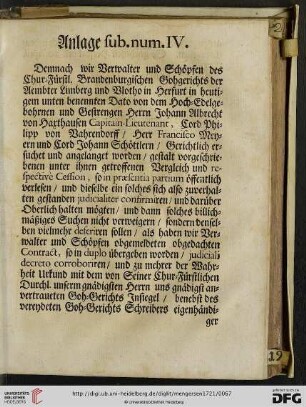 Anlage sub.num.IV.
Demnach wir Verwalter und Schöpfen des
Chur-Fürstl. Brandenburgischen Gohgerichts der
Aembter Limberg und Vlotho in Herfurt in heuti-
gem unten benennten Dato von dem Hoch-Edelge-
bohrnen und Gestrengen Herrn Johann Albrecht
von Haxthausen Capitain-Lieutenant, Cord Phi-
lipp von Vahrendorff / Herr Francisco Mey-
ern und Cord Johann Schöttlern / Gerichtlich er-
suchet und angelanget worden / gestalt vorgeschrie-
benen unter ihnen getroffenen Vergleich und re-
spectivè Cession, so in præsentia partium öffentlich
verlesen / und dieselbe ein solches sich also zuverhal-
ten gestanden judicialiter confirmiren / und darüber
Oberlich halten mögten / und dann solches billich-
mäßiges Suchen nicht verweigern / sondern densel-
ben vielmehr deferiren sollen / als haben wir Ver-
walter und Schöpfen obgemeldeten obgedachten
Contract, so in duplo übergeben worden / judiciali
decreto corroboriren / und zu mehrer der Wahr-
heit Urkund mit dem von Seiner Chur-Fürstlichen
Durchl. unserm gnädigsten Herrn uns gnädigst an-
vertraueten Goh-Gerichts Insiegel / benebst des
vereydeten Goh-Gerichts Schreibers eigenhändi-
ger
19
UNIVERSITÄTS-
BIBLIOTHEK
HEIDELBERG
http://digi.ub.uni-heidelberg.de/diglit/mengersen1721/0067
© Universitätsbibliothek Heidelberg
gefördert durch die
DFG